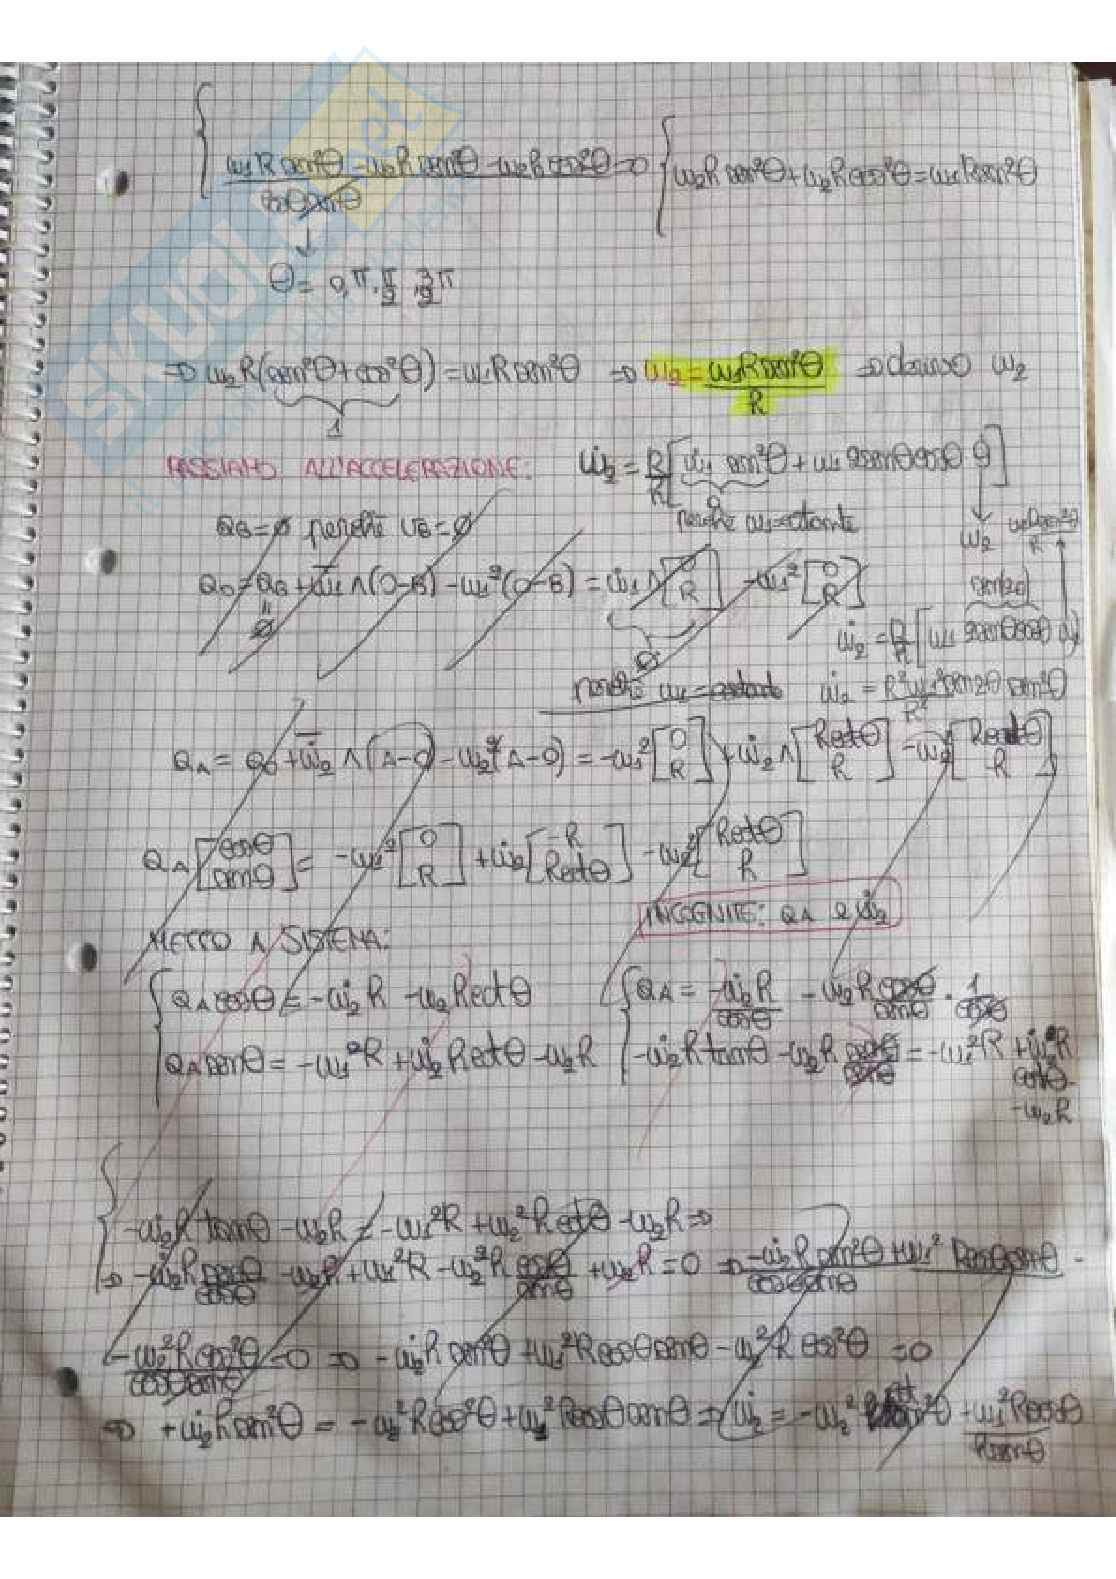 ω₁R sen²θ - ω₂R sen²θ - ω₂R cos²θ = 0
cosθ senθ
{ ω₂R sen²θ + ω₂R cos²θ = ω₁R sen²θ
↓
θ = 0, π, π/2, 3/2 π
⇒ ω₂R(sen²θ + cos²θ) = ω₁R sen²θ ⇒ ω₂ = ω₁R sen²θ / R ⇒ derivo ω₂
1
PASSIAMO ALL'ACCELERAZIONE:
ω̇₂ = R/R [ω̇₁ sen²θ + ω₁ 2senθcosθ θ̇]
0
perché ω₁ = costante
ω₂ ω₁R sen²θ / R
aB = ø perché vB = ø
aO = aB + ω̇₁ ∧ (O-B) - ω₁²(O-B) = ω̇₁ ∧ [0 R] - ω₁² [0 R]
ø
sen(2θ)
ω̇₂ = R/R [ω₁ 2senθcosθ
ø
perché ω₁ = costante
ω̇₂ = R²ω₁² sen2θ sen²θ / R²
aA = aO + ω̇₂ ∧ (A-O) - ω₂²(A-O) = -ω₁² [0 R] + ω̇₂ ∧ [Rcotθ R] - ω₂² [Rcotθ R]
aA [cosθ senθ] = -ω₁² [0 R] + ω̇₂ [-R Rcotθ] - ω₂² [Rcotθ R]
INCOGNITE: aA e ω̇₂
METTO A SISTEMA:
{ aA cosθ = -ω̇₂R - ω₂Rcotθ
{ aA = -ω̇₂R / cosθ - ω₂R cosθ / senθ · 1 / cosθ
aA senθ = -ω₁²R + ω̇₂Rcotθ - ω₂R
-ω̇₂R tanθ - ω₂R senθ / senθ = -ω₁²R + ω̇₂R
- ω₂R
{ -ω̇₂R tanθ - ω₂R = -ω₁²R + ω₂²Rcotθ - ω₂R ⇒
⇒ -ω̇₂R senθ / cosθ - ω₂R + ω₁²R - ω₂²R cosθ / senθ + ω₂R = 0 ⇒ -ω̇₂R sen²θ + ω₁² R cosθ senθ -
cosθ senθ
-ω₂²R cos²θ / cosθ senθ = 0 ⇒ -ω̇₂R sen²θ + ω₁²R cosθ senθ - ω₂²R cos²θ = 0
⇒ +ω̇₂R sen²θ = -ω₂²R cos²θ + ω₁²R cosθ senθ ⇒ ω̇₂ = -ω₂² cot²θ + ω₁²R cosθ / R senθ